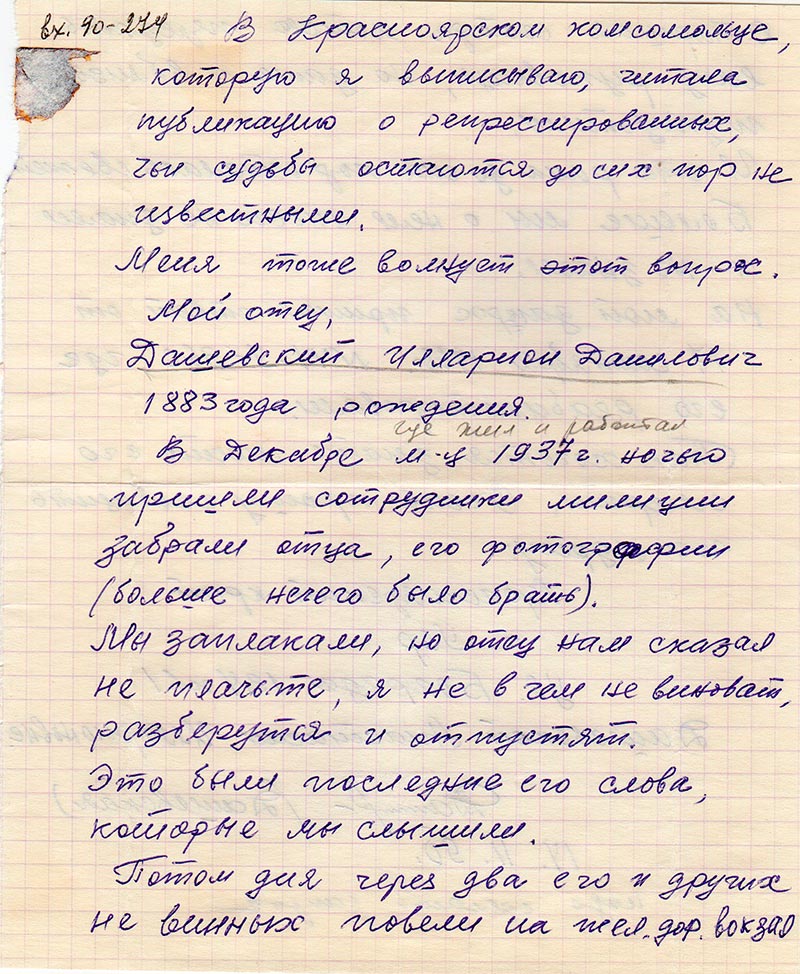 вх. 90-274
В Красноярском комсомольце,
которую я выписываю, читала
публикацию о репрессированных,
чьи судьбы остаются до сих пор не
известными.
Меня тоже волнует этот вопрос.
Мой отец,
Дашевский Илларион Данилович
1883 года рождения.
где жил и работал
В Декабре м-ц 1937 г. ночью
пришли сотрудники милиции
забрали отца, его фотографии
(больше нечего было брать).
Мы заплакали, но отец нам сказал
не плачьте, я не в чем не виноват,
разберутся и отпустят.
Это были последние его слова,
которые мы слышили.
Потом дня через два его и других
не винных повели на жел. дор. вокзал